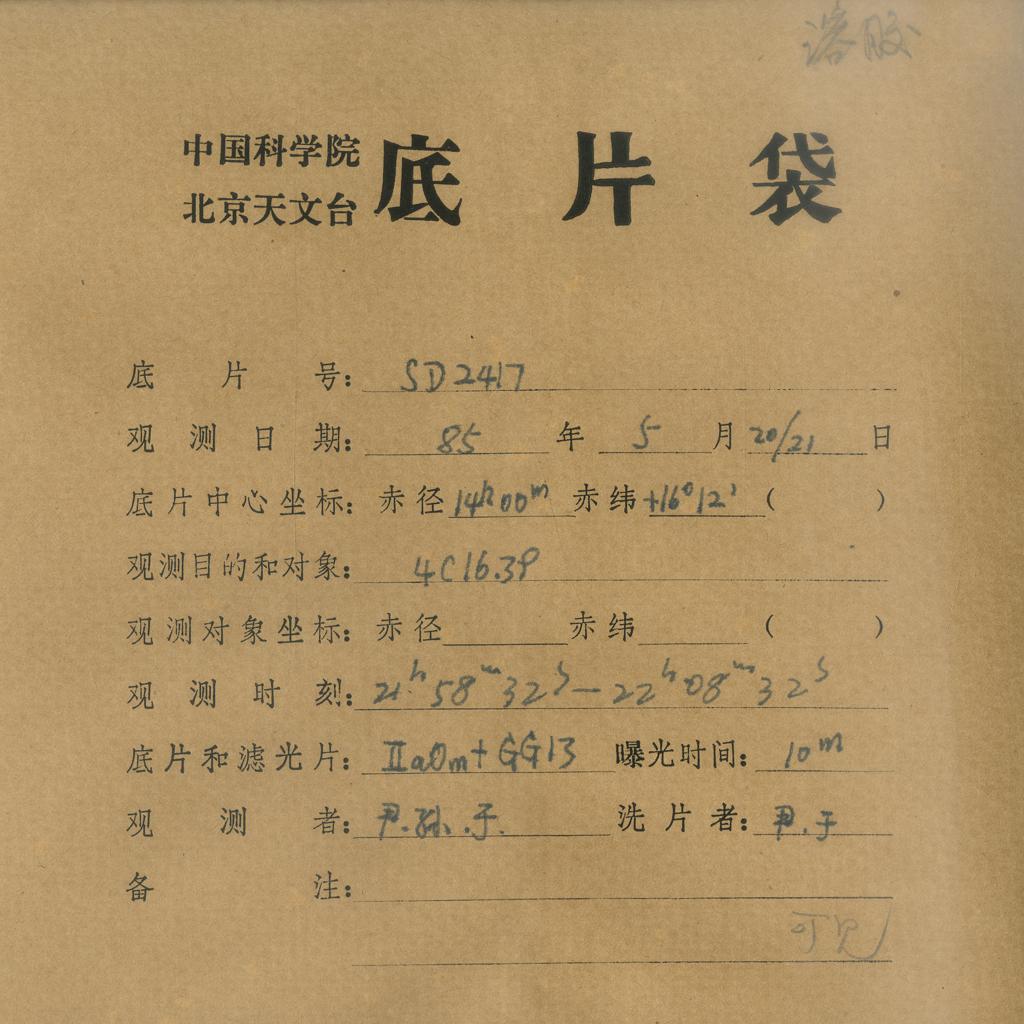 溶胶
中国科学院
北京天文台
底片袋
底片号: SD2417
观测日期: 85 年 5 月 20/21 日
底片中心坐标: 赤径 14h00m 赤纬 +16°12' ( )
观测目的和对象: 4C16.39
观测对象坐标: 赤径 赤纬 ( )
观测时刻: 21h58m32s—22h08m32s
底片和滤光片: IIaOm+GG13 曝光时间: 10m
观测者: 尹.孙.于. 洗片者: 尹.于
备注:
可见